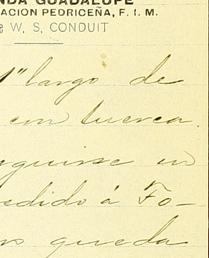 NDA GUADALUPE
ACION PEDRICEÑA, F. I. M.
e W. S. CONDUIT
1" largo de
con tuerca.
guirse un
edido á Fo-
queda